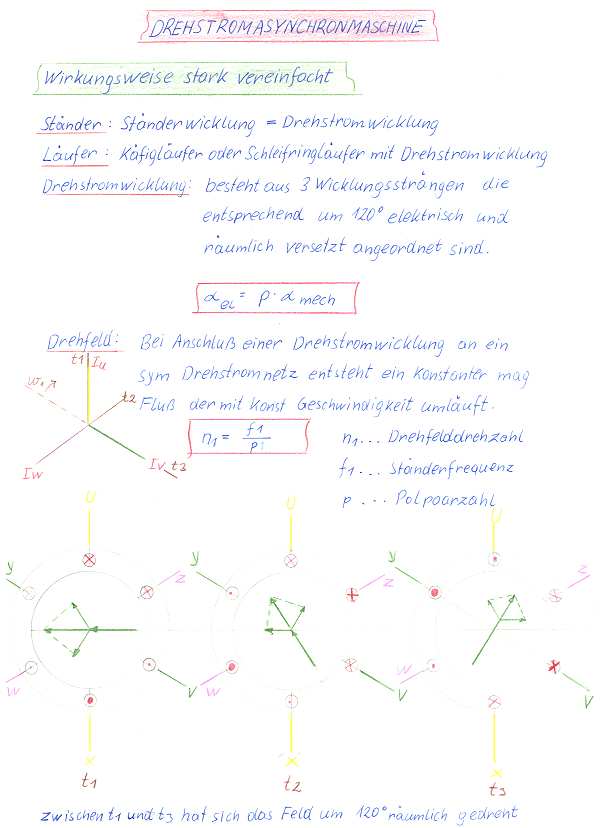 DREHSTROMASYNCHRONMASCHINE
Wirkungsweise stark vereinfacht
Ständer: Ständerwicklung = Drehstromwicklung
Läufer: Käfigläufer oder Schleifringläufer mit Drehstromwicklung
Drehstromwicklung: besteht aus 3 Wicklungssträngen die
entsprechend um 120° elektrisch und
räumlich versetzt angeordnet sind.
α el = p · α mech
Drehfeld: Bei Anschluß einer Drehstromwicklung an ein
sym Drehstromnetz entsteht ein konstanter mag
Fluß der mit konst Geschwindigkeit umläuft.
t1 Iu
t2
Iw
Iv t3
n1 = f1 / p
n1 ... Drehfelddrehzahl
f1 ... Ständerfrequenz
p ... Polpaarzahl
U U U
y z y z y z
w v w v w v
x x x
t1 t2 t3
zwischen t1 und t3 hat sich das Feld um 120° räumlich gedreht